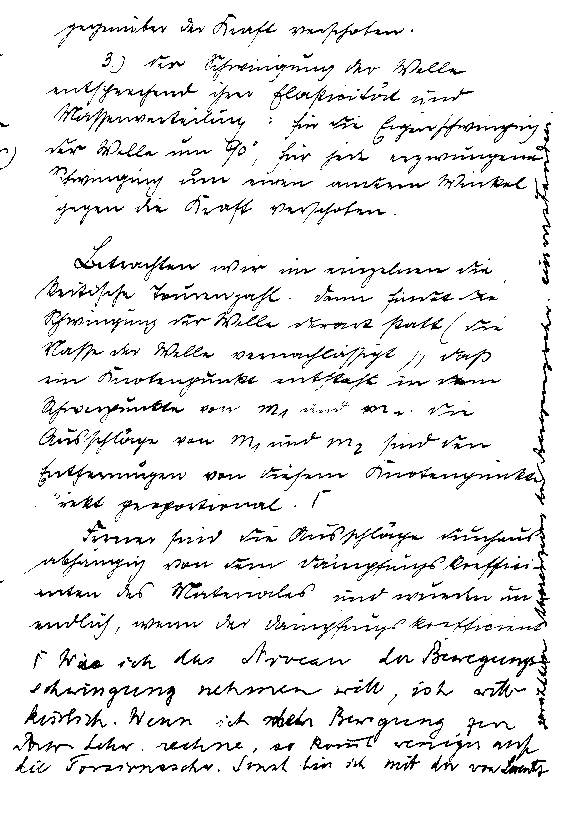 gegenüber der Kraft verschoben.
3.) der Schwingung der Welle
entsprechend ihrer Elastizität und
Massenverteilung: für die Eigenschwingung
der Welle um 90°, für jede erzwungene
Schwingung um einen andern Winkel
gegen die Kraft verschoben.
Betrachten wir im einzelnen die
kritische Tourenzahl. Dann findet die
Schwingung der Welle derart statt (die
Masse der Welle vernachlässigt), daß
ein Knotenpunkt entsteht in dem
Schwerpunkte von m₁ und m₂. die
Ausschläge von m₁ und m₂ sind den
Entfernungen von diesem Knotenpunkte
direkt proportional. Γ
Ferner sind die Ausschläge durchaus
abhängig von dem Dämpfungskoeffizi-
enten des Materiales und würden un
endlich, wenn der Dämpfungskoeffizient
Γ Was ich das Niveau der Bewegungs
schwingung nehmen will, ist will-
kürlich. Wenn ich mehr Bewegung zur
schw. rechne, so kommt weniger auf
die Torsionsschw. Sonst bin ich mit der von
Bewegungsschw. einverstanden